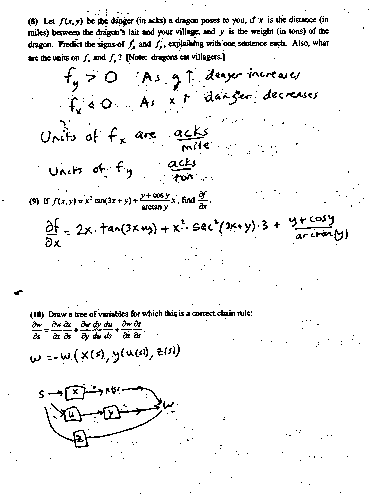 (8) Let f(x, y) be the danger (in acks) a dragon poses to you, if x is the distance (in
miles) between the dragon's lair and your village, and y is the weight (in tons) of the
dragon. Predict the signs of f_x and f_y, explaining with one sentence each. Also, what
are the units on f_x and f_y? [Note: dragons eat villagers.]
f_y > 0 As y↑ danger increases
f_x < 0 As x↑ danger decreases
Units of f_x are acks/mile
Units of f_y acks/ton
(9) If f(x, y) = x² tan(3x + y) + (y + cos y)/(arctan y) x, find ∂f/∂x.
∂f/∂x = 2x · tan(3x+y) + x² · sec²(3x+y) · 3 + (y + cosy)/(arctan(y))
(10) Draw a tree of variables for which this is a correct chain rule:
∂w/∂s = ∂w/∂x ∂x/∂s + ∂w/∂y dy/du du/ds + ∂w/∂z ∂z/∂s
w = w(x(s), y(u(s)), z(s))
s → x → x(s)
u → y → w
z